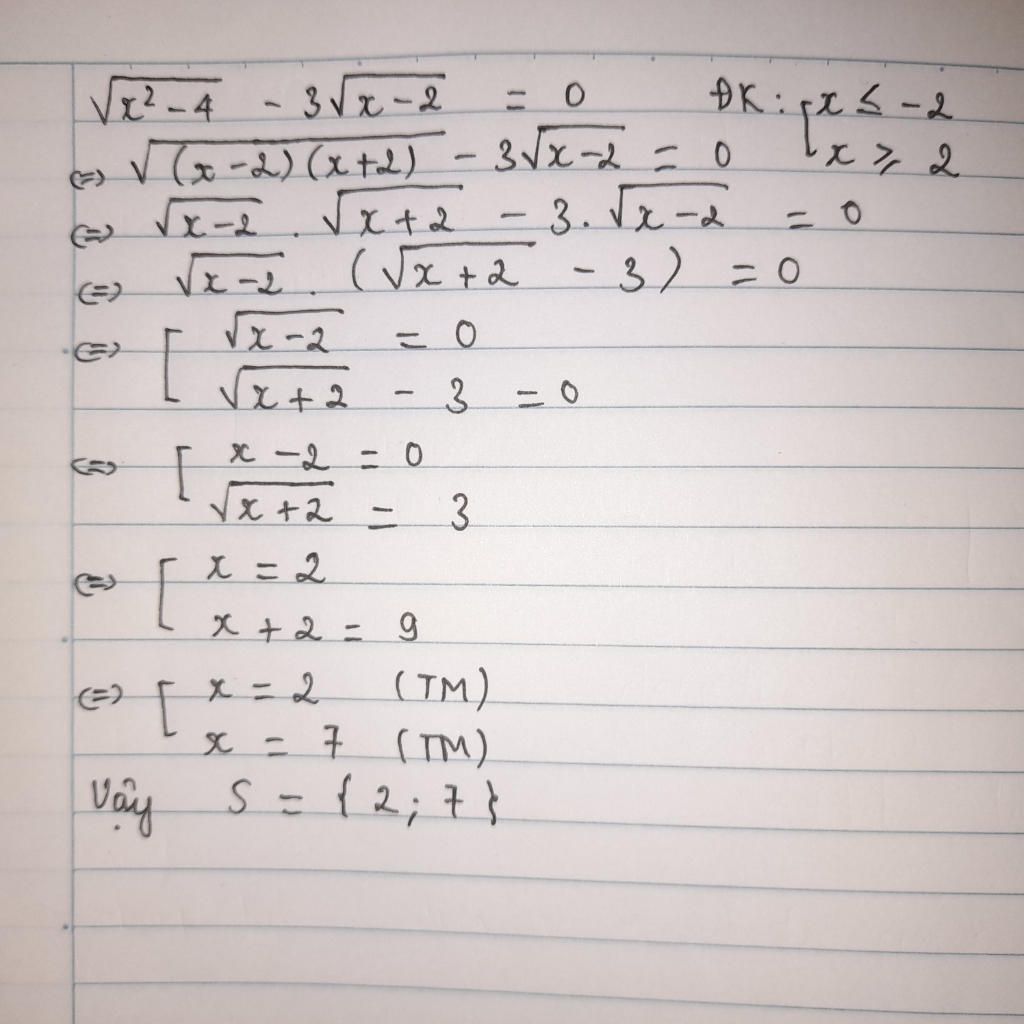 √(x²-4) - 3√(x-2) = 0 ĐK: [x ≤ -2
⇔ √((x-2)(x+2)) - 3√(x-2) = 0 x ≥ 2
⇔ √(x-2) . √(x+2) - 3.√(x-2) = 0
⇔ √(x-2) . (√(x+2) - 3) = 0
⇔ [ √(x-2) = 0
√(x+2) - 3 = 0
⇔ [ x - 2 = 0
√(x+2) = 3
⇔ [ x = 2
x + 2 = 9
⇔ [ x = 2 (TM)
x = 7 (TM)
Vậy S = {2; 7}